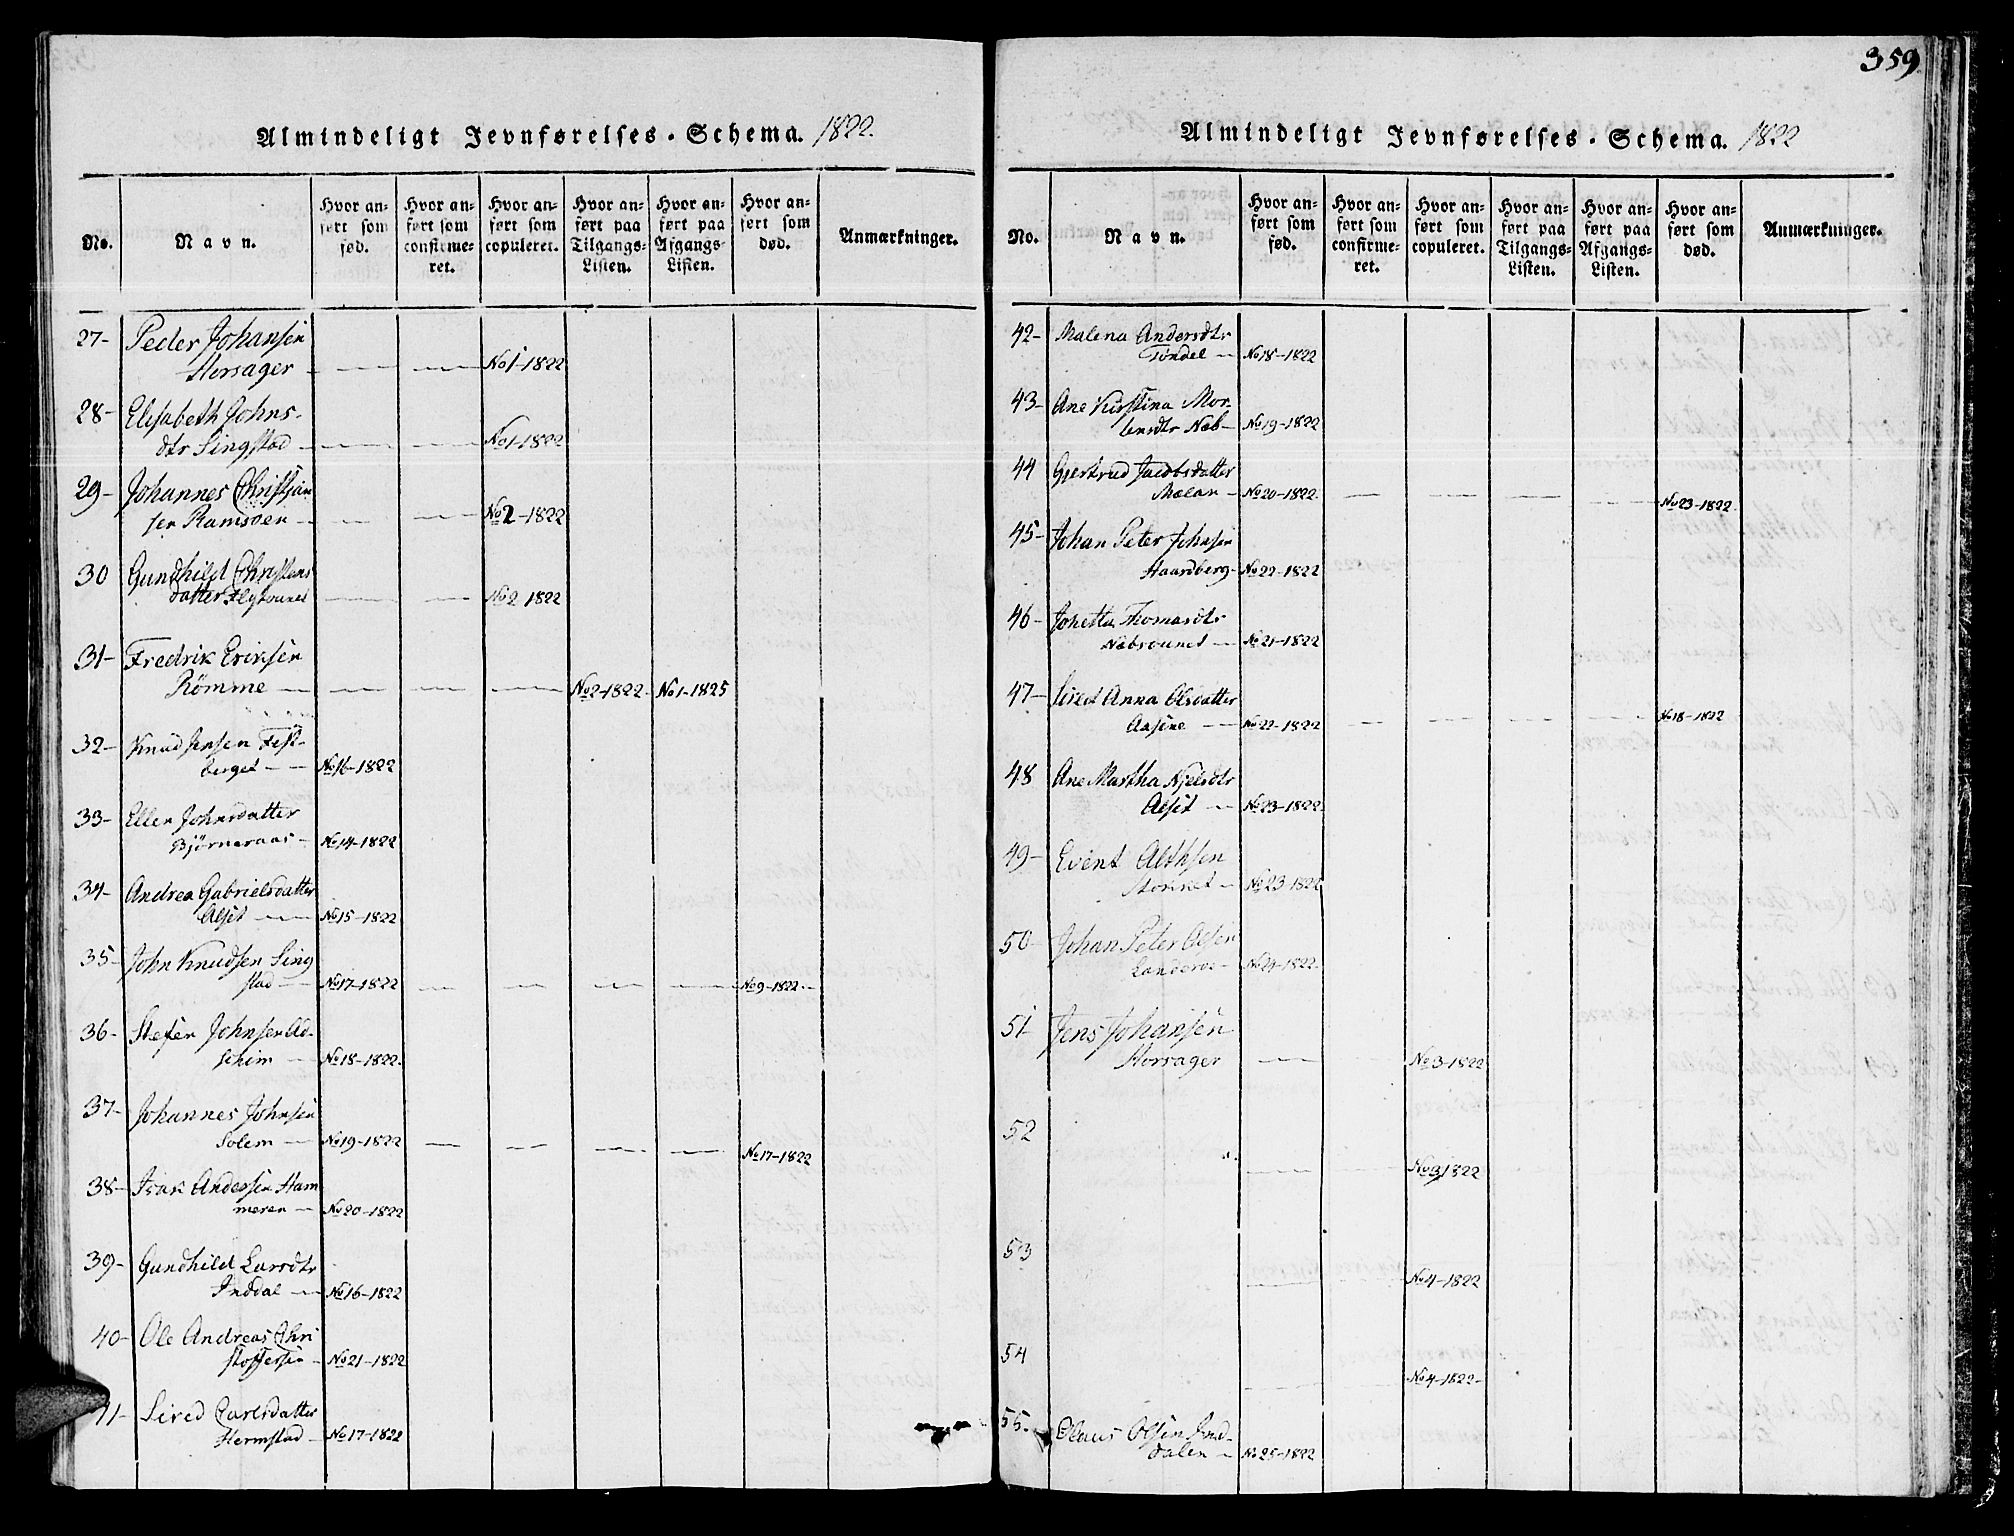 359
Almindeligt Jevnførelses-Schema. 1822.
No.
Navn.
Hvor an-
ført som
fød.
Hvor an-
ført som
confirme-
ret.
Hvor an-
ført som
copuleret.
Hvor an-
ført paa
Tilgangs-
Listen.
Hvor an-
ført paa
Afgangs-
Listen.
Hvor an-
ført som
død.
Anmærkninger.
27- Peder Johansen
Horsager - No 1-1822
28- Elisabeth Johns-
dtr Singstad - No 1-1822
29- Johannes Christian
sen Ramsøen - No 2-1822
30 Gundhild Christens
datter - No 2 1822
31- Fredrik Eriksen
Römme - No 2-1822. No 1-1825
32- Knud Jensen Fest-
berget - No 16-1822
33- Ellen Johnsdatter
Björneraas - No 14-1822
34- Andrea Gabrielsdatter
Alset - No 15-1822
35- John Knudsen Sing
stad - No 17-1822 No 9-1822.-
36- Stefen Johnsen
No 18-1822.
37- Johannes Johnsen
Solem - No 19-1822 No 17-1822
38- Isak Andersen Ham
meren - No 20-1822
39- Gundhild Larsdtr
Inddal - No 16-1822
40- Ole Andreas Chri
stoffersen - No 21-1822
41- Sired Carlsdatter
Hermstad - No 17-1822
Almindeligt Jevnførelses-Schema. 1822
No.
Navn.
Hvor an-
ført som
fød.
Hvor an-
ført som
confirme-
ret.
Hvor an-
ført som
copuleret.
Hvor an-
ført paa
Tilgangs-
Listen.
Hvor an-
ført paa
Afgangs-
Listen.
Hvor an-
ført som
død.
Anmærkninger.
42- Malena Andersdtr
Tøndel - No 18-1822
43- Ane Kirstina Mor-
tensdtr Næb- No 19-1822
44 Gjertrud Jacobsdatter
Mælan - No 20-1822. No 23-1822
45- Johan Peter Johnsen
Haardberg- No 22-1822
46- Johetta Thomasdtr
No 21-1822
47- Sired Anna Olsdatter
Aasine - No 22-1822 No 18-1822
48 Ane Martha Njelsdtr
Alset - No 23-1822
49- Event
No 23-1822
50- Johan Peter Olsen
No 24-1822.
51- Jens Johansen
Horsager No 3-1822
52
No 3/1822
53
No 4-1822
54
No 4-1822-
55. Olaus Olsen Ind-
dalen - No 25-1822